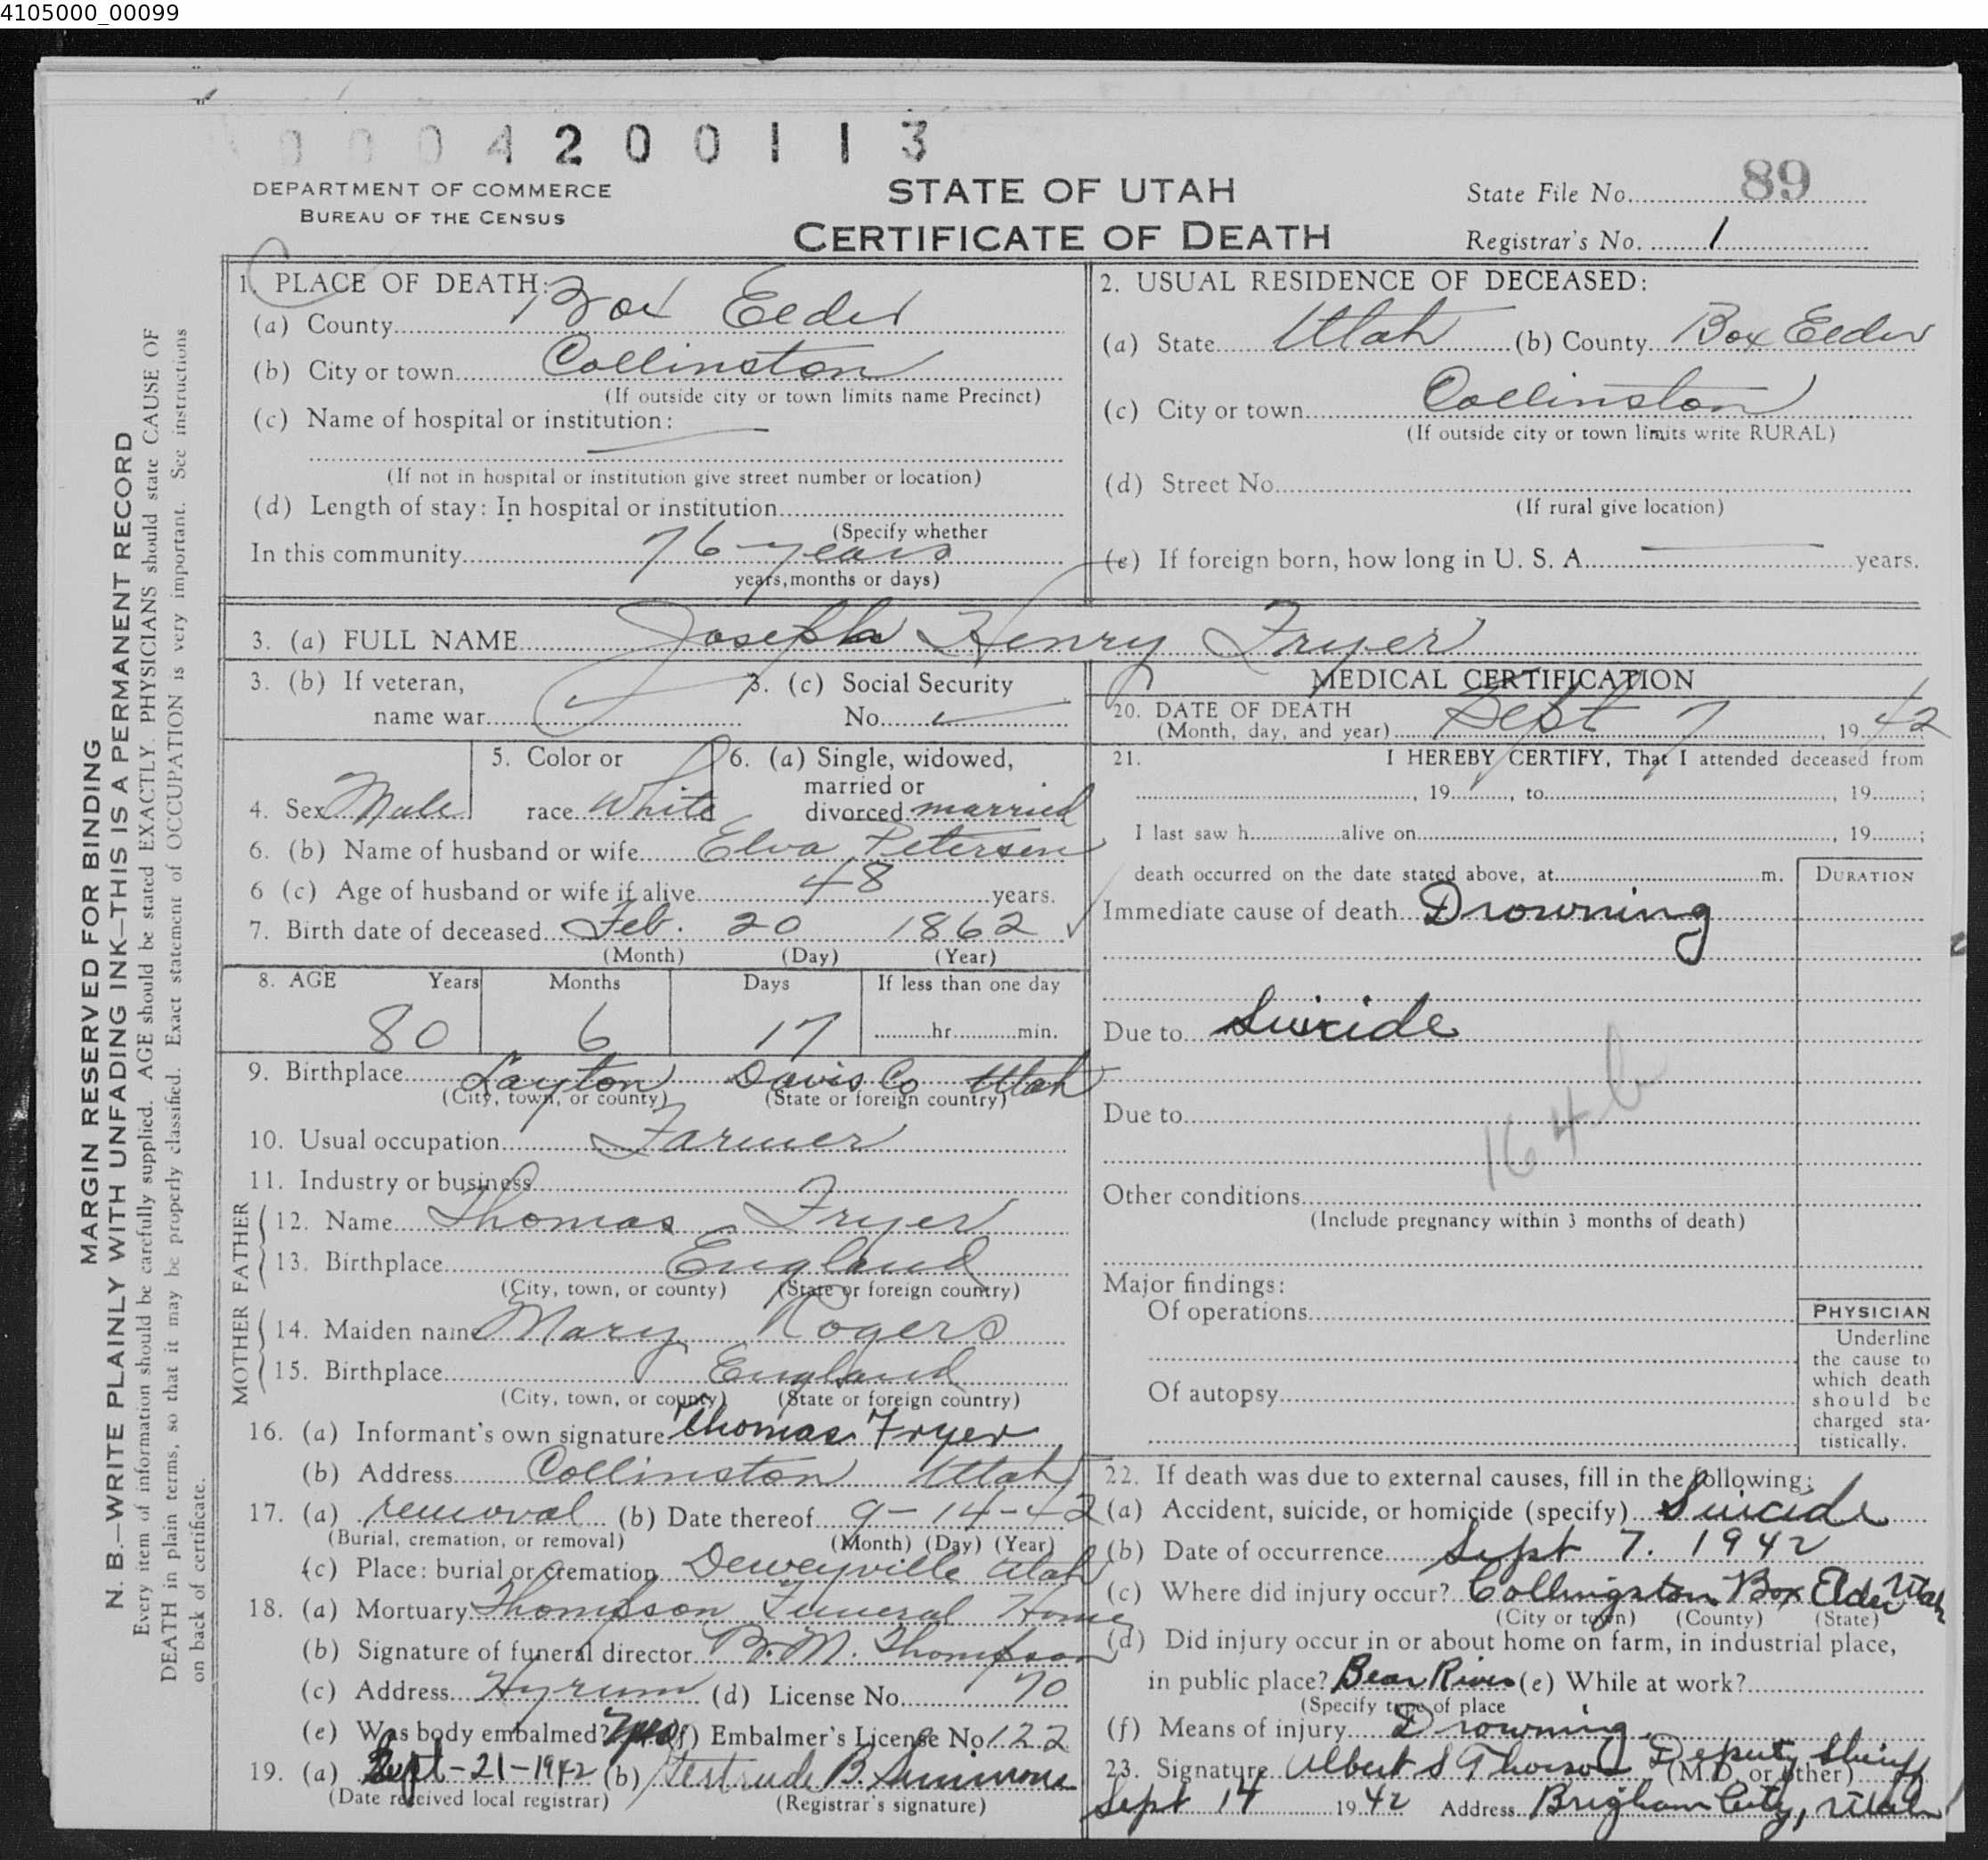 4105000_00099
0004200113
DEPARTMENT OF COMMERCE
BUREAU OF THE CENSUS
STATE OF UTAH
CERTIFICATE OF DEATH
State File No. 89
Registrar's No. 1
MARGIN RESERVED FOR BINDING
N. B.—WRITE PLAINLY WITH UNFADING INK—THIS IS A PERMANENT RECORD
Every item of information should be carefully supplied. AGE should be stated EXACTLY. PHYSICIANS should state CAUSE OF
DEATH in plain terms, so that it may be properly classified. Exact statement of OCCUPATION is very important. See instructions
on back of certificate.
1. PLACE OF DEATH:
(a) County Box Elder
(b) City or town Collinston
(If outside city or town limits name Precinct)
(c) Name of hospital or institution:
(If not in hospital or institution give street number or location)
(d) Length of stay: In hospital or institution
(Specify whether
In this community 76 years
years, months or days)
2. USUAL RESIDENCE OF DECEASED:
(a) State Utah (b) County Box Elder
(c) City or town Collinston
(If outside city or town limits write RURAL)
(d) Street No.
(If rural give location)
(e) If foreign born, how long in U. S. A. years.
3. (a) FULL NAME Joseph Henry Fryer
3. (b) If veteran,
name war
3. (c) Social Security
No.
4. Sex Male
5. Color or
race White
6. (a) Single, widowed,
married or
divorced married
6. (b) Name of husband or wife Elva Petersen
6 (c) Age of husband or wife if alive 48 years.
7. Birth date of deceased Feb. 20 1862
(Month) (Day) (Year)
8. AGE Years Months Days If less than one day
80 6 17 hr. min.
9. Birthplace Layton Davis Co Utah
(City, town, or county) (State or foreign country)
10. Usual occupation Farmer
11. Industry or business
FATHER
12. Name Thomas Fryer
13. Birthplace England
(City, town, or county) (State or foreign country)
MOTHER
14. Maiden name Mary Rogers
15. Birthplace England
(City, town, or county) (State or foreign country)
16. (a) Informant's own signature Thomas Fryer
(b) Address Collinston Utah
17. (a) removal (b) Date thereof 9-14-42
(Burial, cremation, or removal) (Month) (Day) (Year)
(c) Place: burial or cremation Deweyville Utah
18. (a) Mortuary Thompson Funeral Home
(b) Signature of funeral director B. M. Thompson
(c) Address Hyrum (d) License No. 70
(e) Was body embalmed? Yes (f) Embalmer's License No. 122
19. (a) Sept-21-1942 (b) Gertrude B. Simmons
(Date received local registrar) (Registrar's signature)
MEDICAL CERTIFICATION
20. DATE OF DEATH
(Month, day, and year) Sept 7, 1942
21. I HEREBY CERTIFY, That I attended deceased from
, 19 , to , 19 ;
I last saw h alive on , 19 ;
death occurred on the date stated above, at m.
DURATION
Immediate cause of death Drowning
Due to Suicide
Due to
164 b
Other conditions
(Include pregnancy within 3 months of death)
Major findings:
Of operations
Of autopsy
PHYSICIAN
Underline
the cause to
which death
should be
charged sta-
tistically.
22. If death was due to external causes, fill in the following:
(a) Accident, suicide, or homicide (specify) Suicide
(b) Date of occurrence Sept 7. 1942
(c) Where did injury occur? Collingston Box Elder Utah
(City or town) (County) (State)
(d) Did injury occur in or about home on farm, in industrial place,
in public place? Bear River (e) While at work?
(Specify type of place
(f) Means of injury Drowning.
23. Signature Albert S Thorson Deputy Sheriff
(M.D. or other)
Sept 14 1942 Address Brigham City, Utah